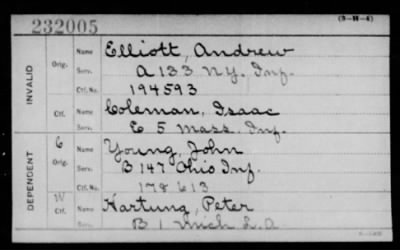 (3-W-4)
232005
INVALID
Orig.
Name Elliott, Andrew
Serv. A 133 N.Y. Inf.
Ctf. No. 194593
Ctf.
Name Coleman, Isaac
Serv. E 5 Mass. Inf.
DEPENDENT
C
Orig.
Name Young, John
Serv. B 147 Ohio Inf.
Ctf. No. 178613
W
Ctf.
Name Hartung, Peter
Serv. B 1 Mich L.A.